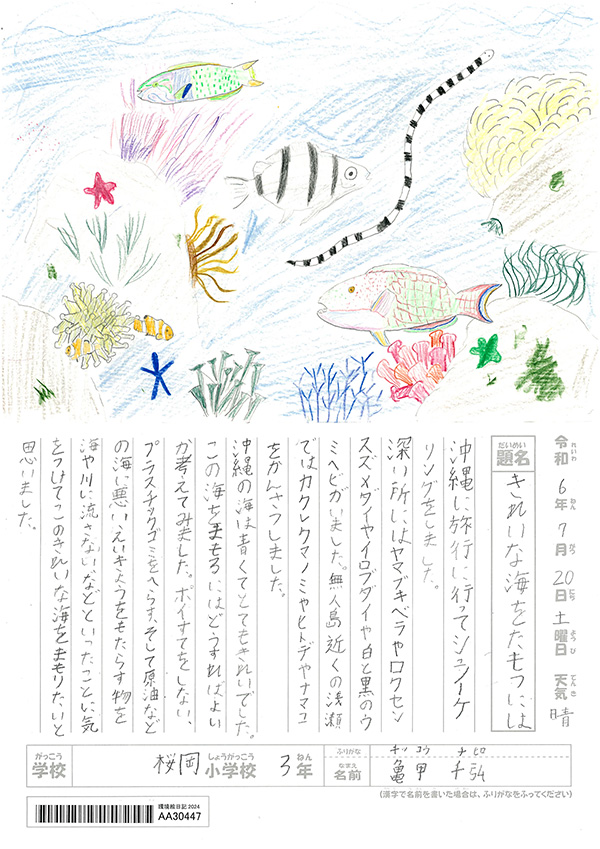 令和6年7月20日土曜日 天気 晴
れいわ ねん がつ にち ようび てんき
だいめい
題名 きれいな海をたもつには
沖縄に旅行に行ってシュノーケ
リングをしました。
深い所にはヤマブキベラやロクセン
スズメダイやイロブダイや白と黒のウ
ミヘビがいました。無人島近くの浅瀬
ではカクレクマノミやヒトデやナマコ
をかんさつしました。
沖縄の海は青くてとてもきれいでした。
この海をまもるにはどうすればよい
か考えてみました。ポイすてをしない、
プラスチックゴミをへらす、そして原油など
の海に悪いえいきょうをもたらす物を
海や川に流さないなどといったことに気
をつけてこのきれいな海をまもりたいと
思いました。
がっこう しょうがっこう ねん ふりがな
学校 桜岡小学校 3年
なまえ
名前 亀甲
(漢字で名前を書いた場合は、ふりがなをふってください)
環境絵日記2024
AA30447